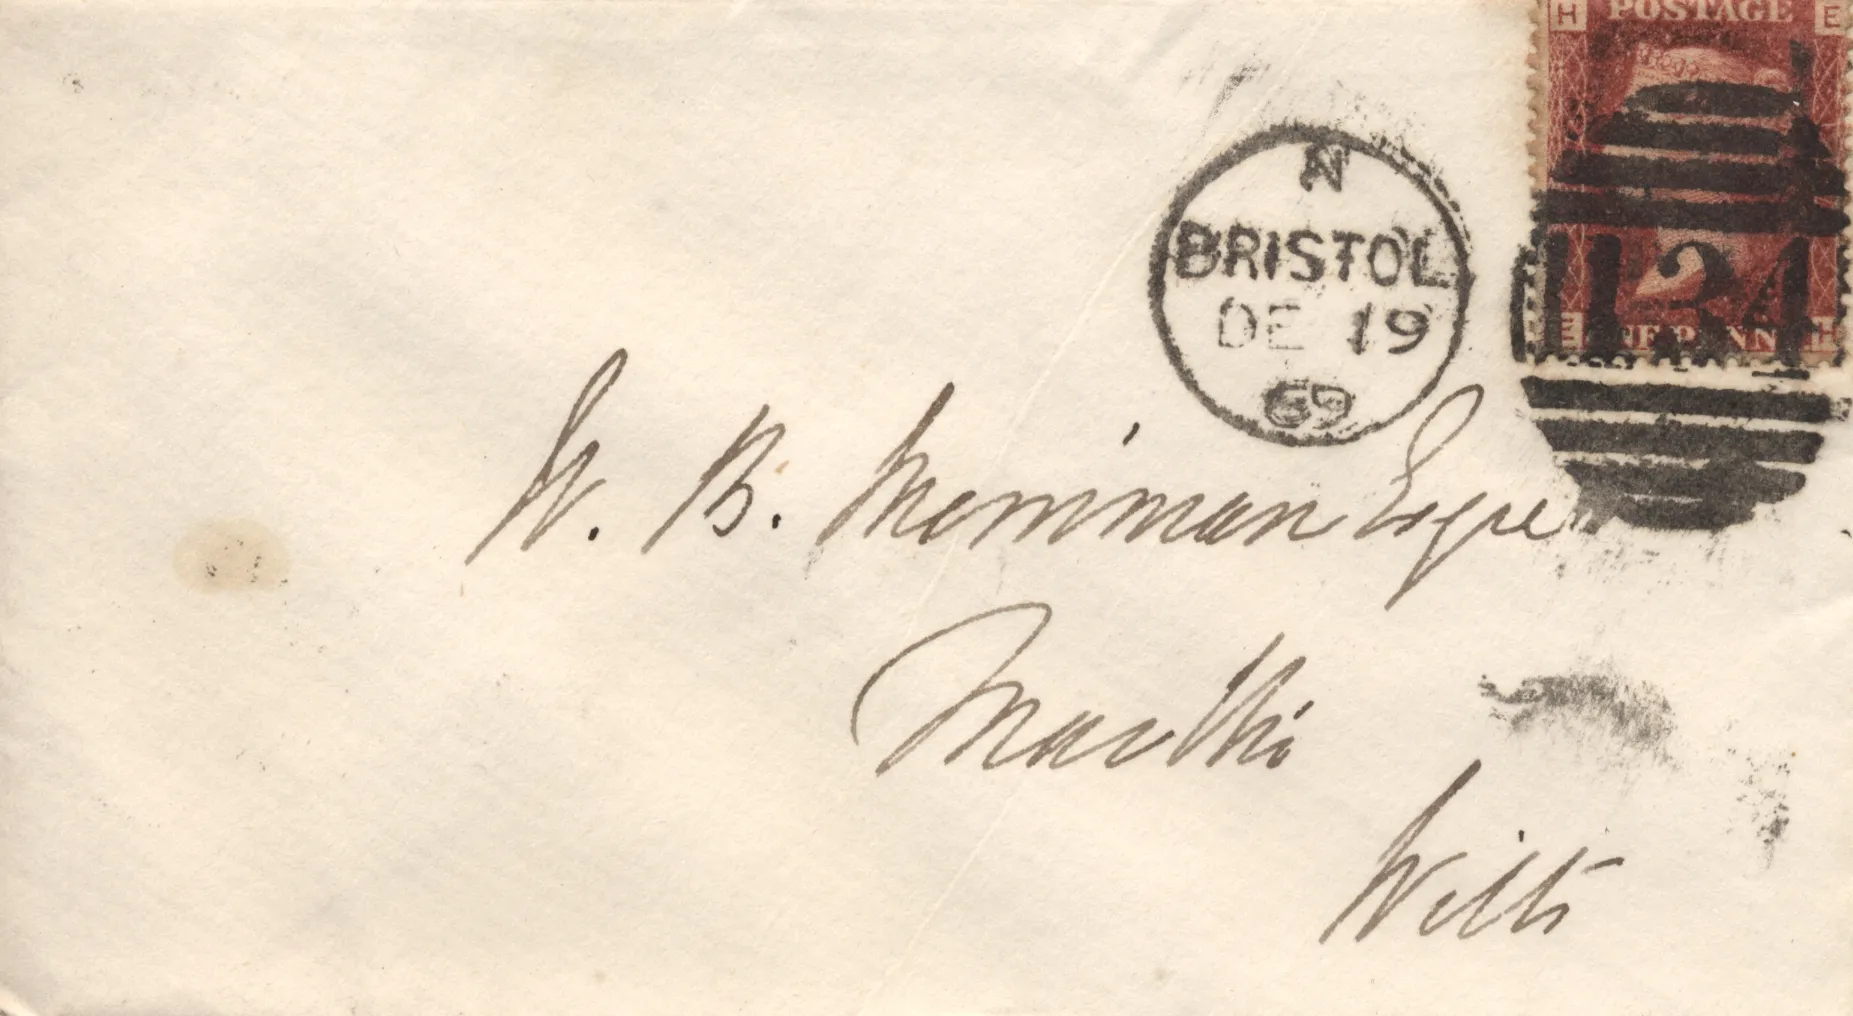 H POSTAGE E
N
BRISTOL
DE 19
69
134
E NE PENN H
W. B. Merriman Esqre
Wilts